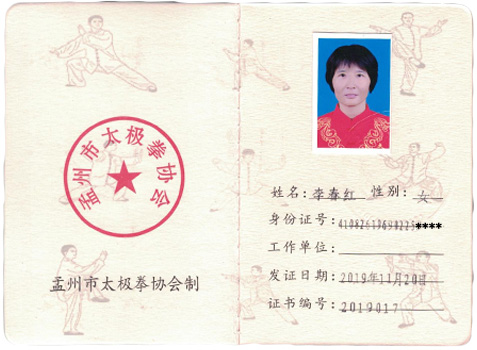 孟州市太极拳协会
孟州市太极拳协会制
姓名:李春红 性别:女
身份证号:41082619690225****
工作单位:
发证日期:2019年11月20日
证书编号:2019017